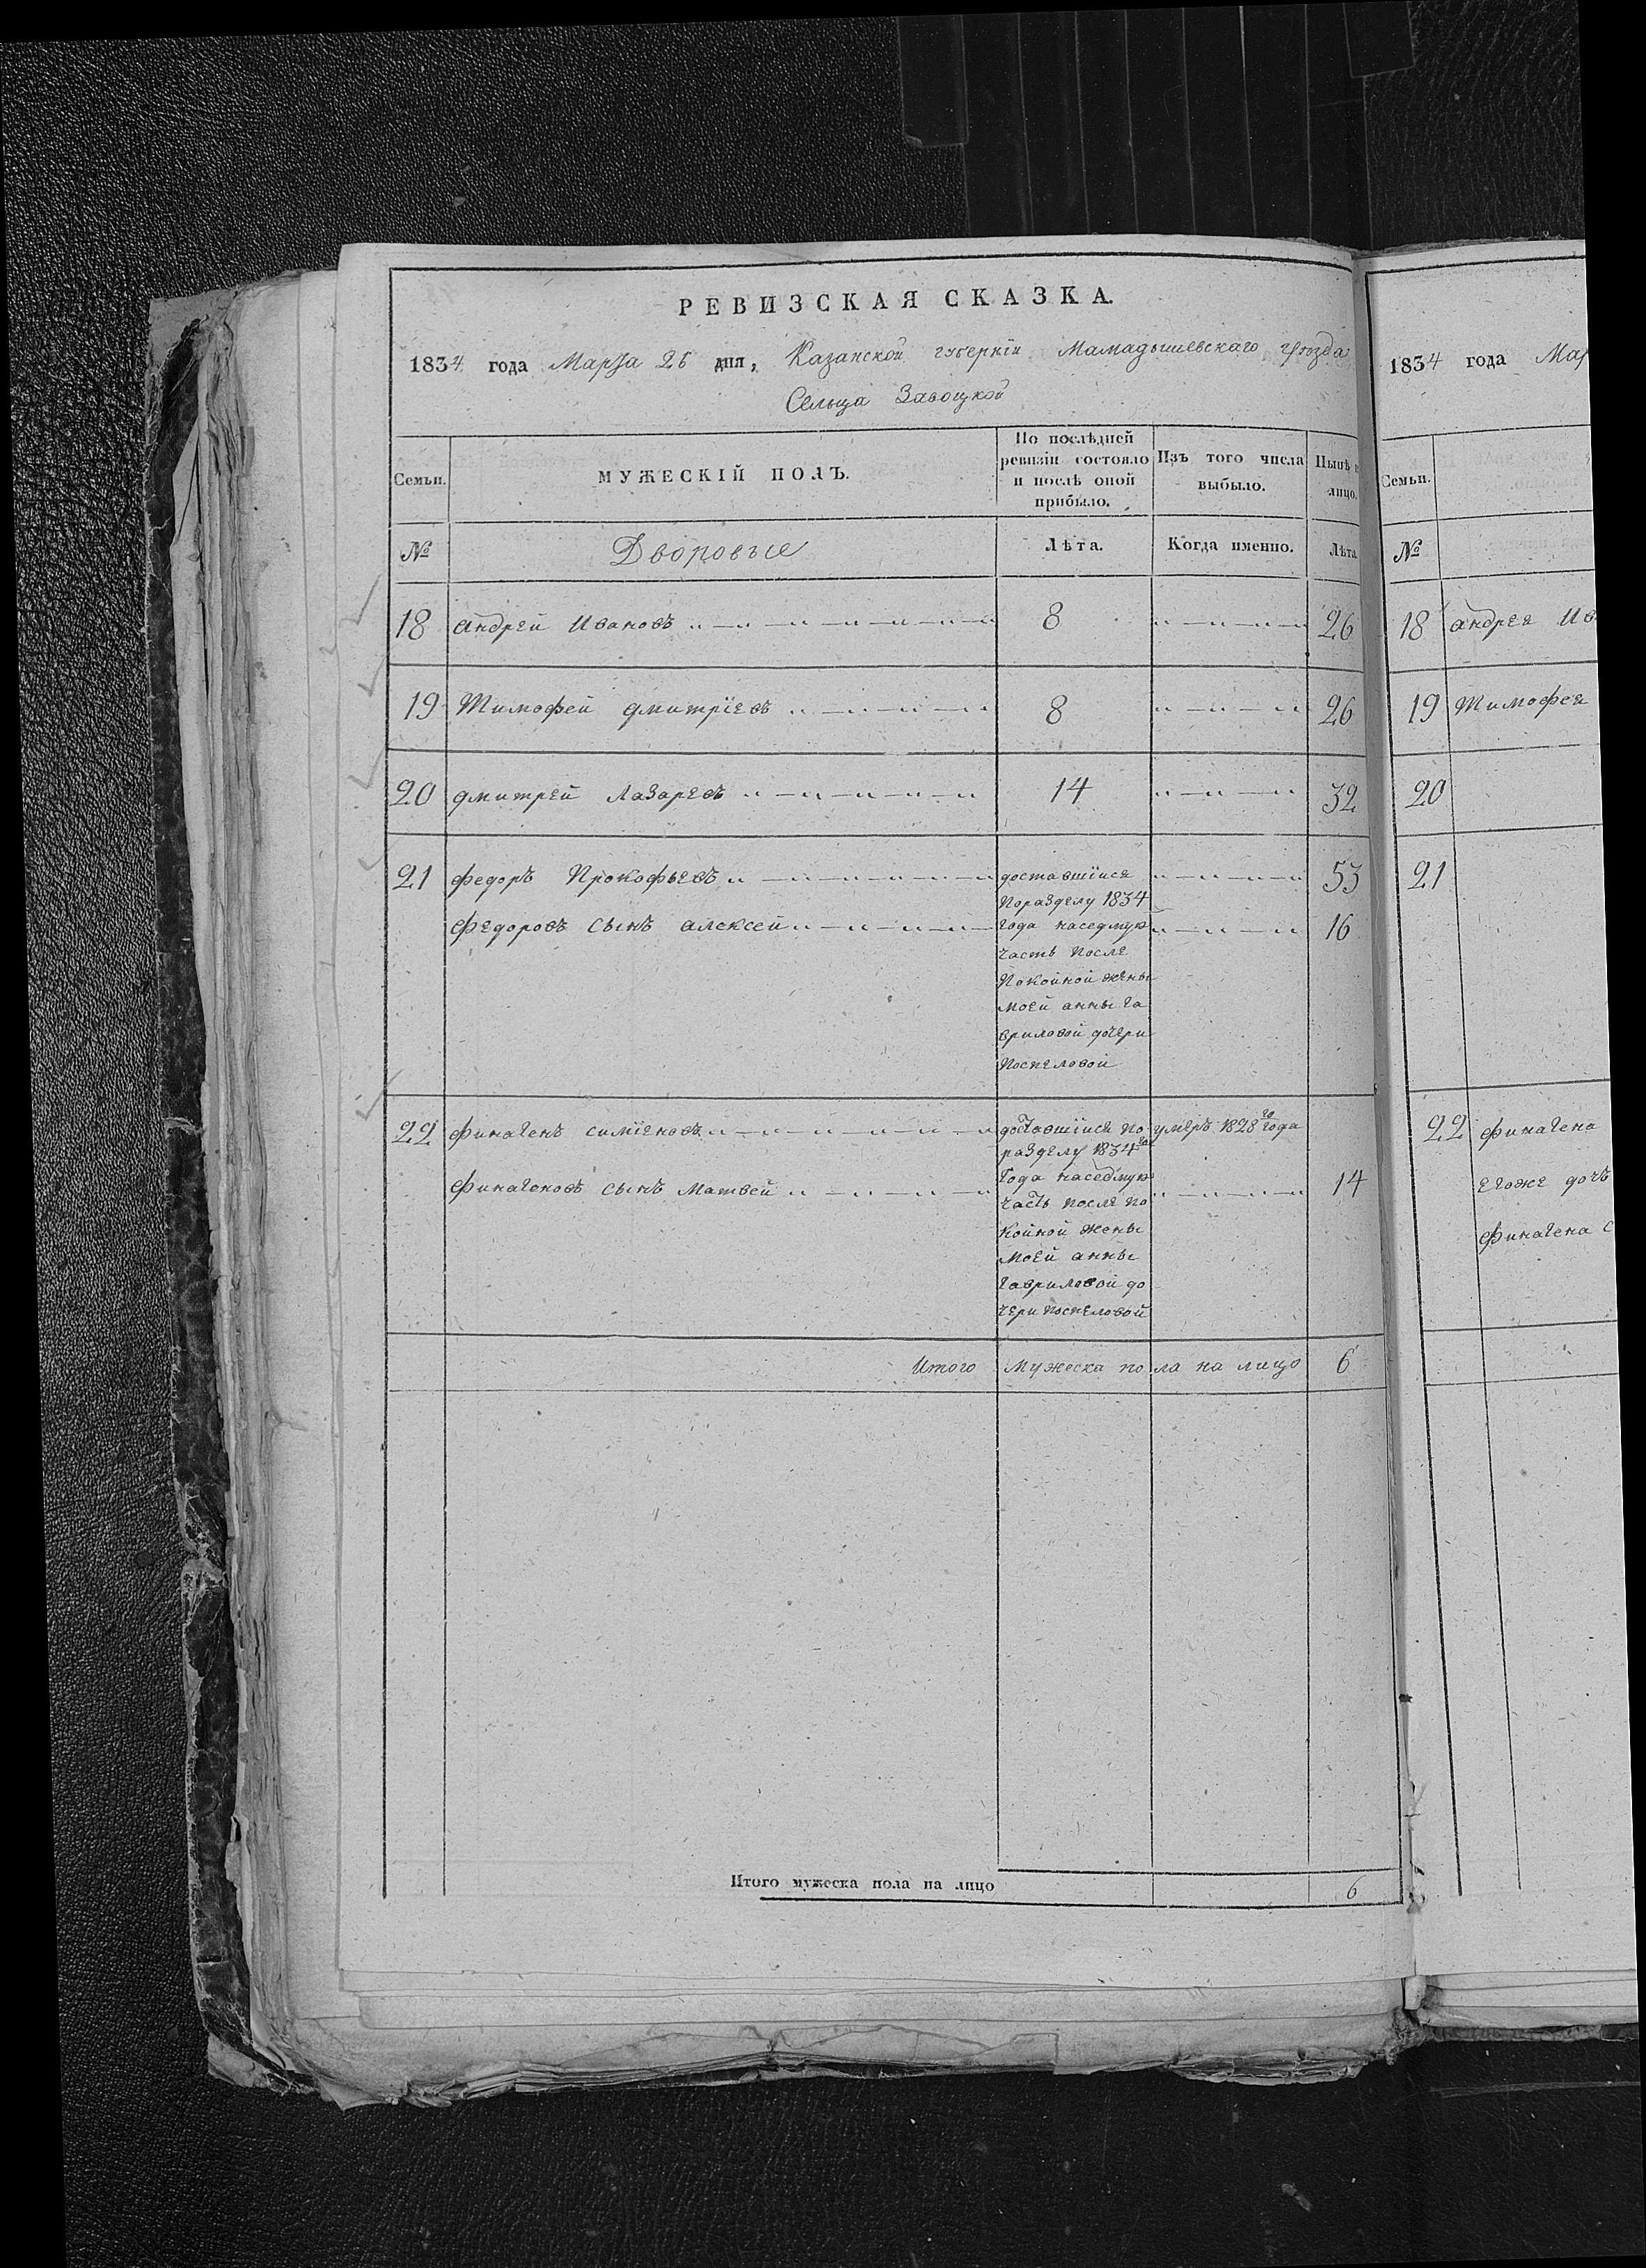 РЕВИЗСКАЯ СКАЗКА.
1834 года Марта 25 дня, Казанской губернiи Мамадышевскаго уезда
Сельца Завоцкой
Семьи. МУЖЕСКIЙ ПОЛЪ. По послѣдней ревизiи состояло и послѣ оной прибыло. Изъ того числа выбыло. Нынѣ лицо.
№ Дворовые Лѣта. Когда именно. Лѣта
18 андрей Ивановъ 8 26
19 Тимофей дмитрïевъ 8 26
20 дмитрей Лазаревъ 14 32
21 федоръ Прокофьевъ доставшïися 53
поразделу 1834
федоровъ сынъ алексей года наседмую 16
часть после
покойной жены
моей анны га
вриловой дочери
поспеловой
22 финагенъ симïеновъ доставшïися по умеръ 1828го года
разделу 1834го
финагеновъ сынъ матвей года наседмую 14
часть после по
койной жены
моей анны
гавриловой до
чери поспеловой
Итого мужеска пола на лицо 6
Итого мужеска пола на лицо 6
1834 года Мар
Семьи.
№
18 андрея Ив
19 Тимофея
20
21
22 финагена
егоже дочь
финагена с